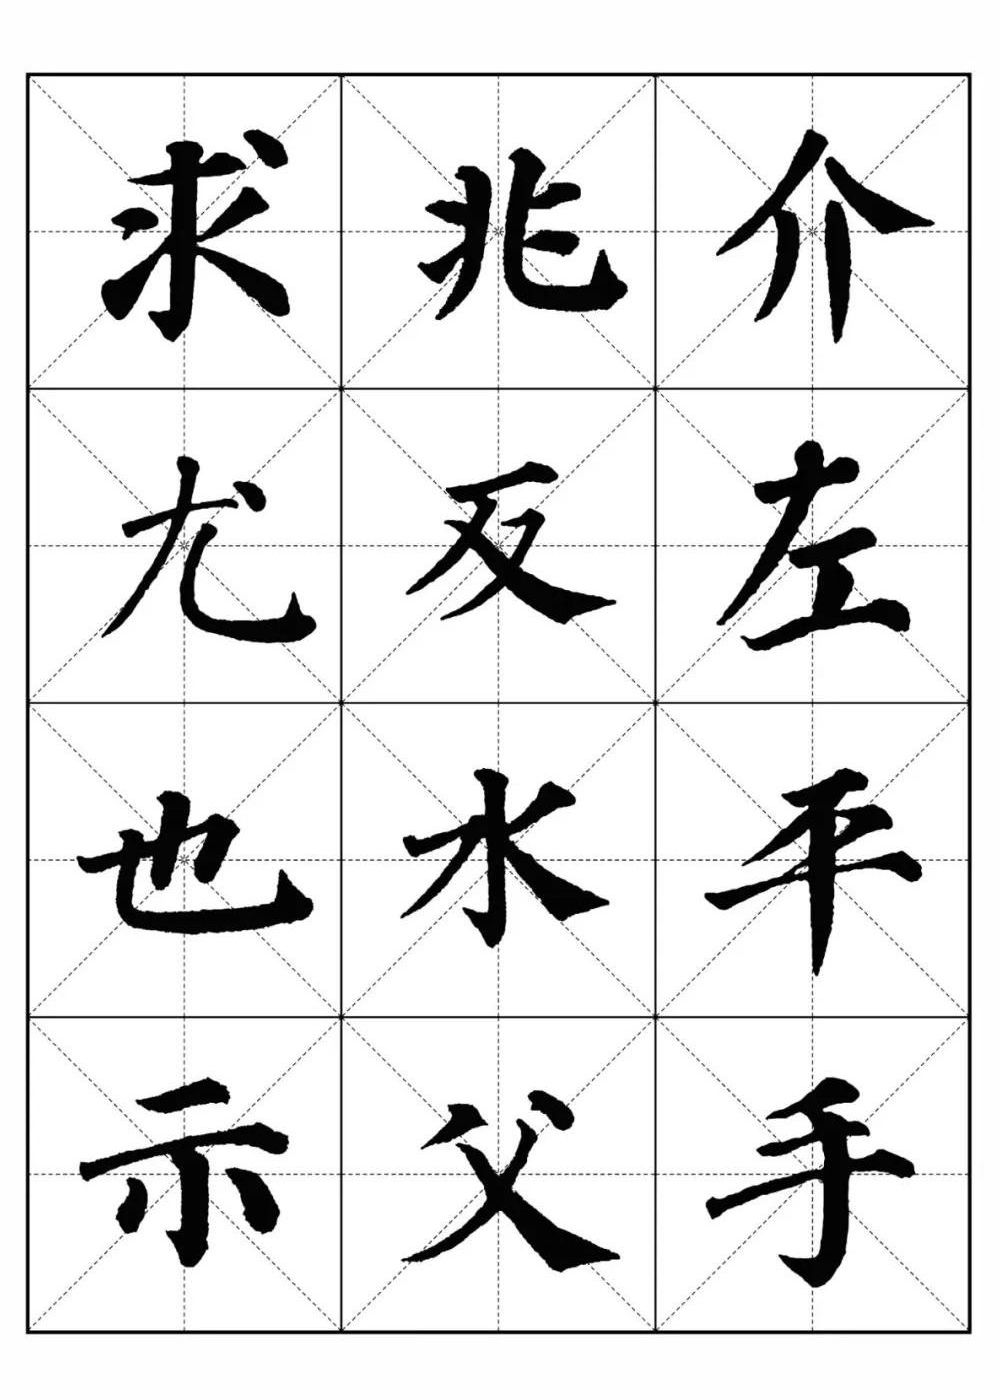 求兆介
尤反左
也水平
示父手